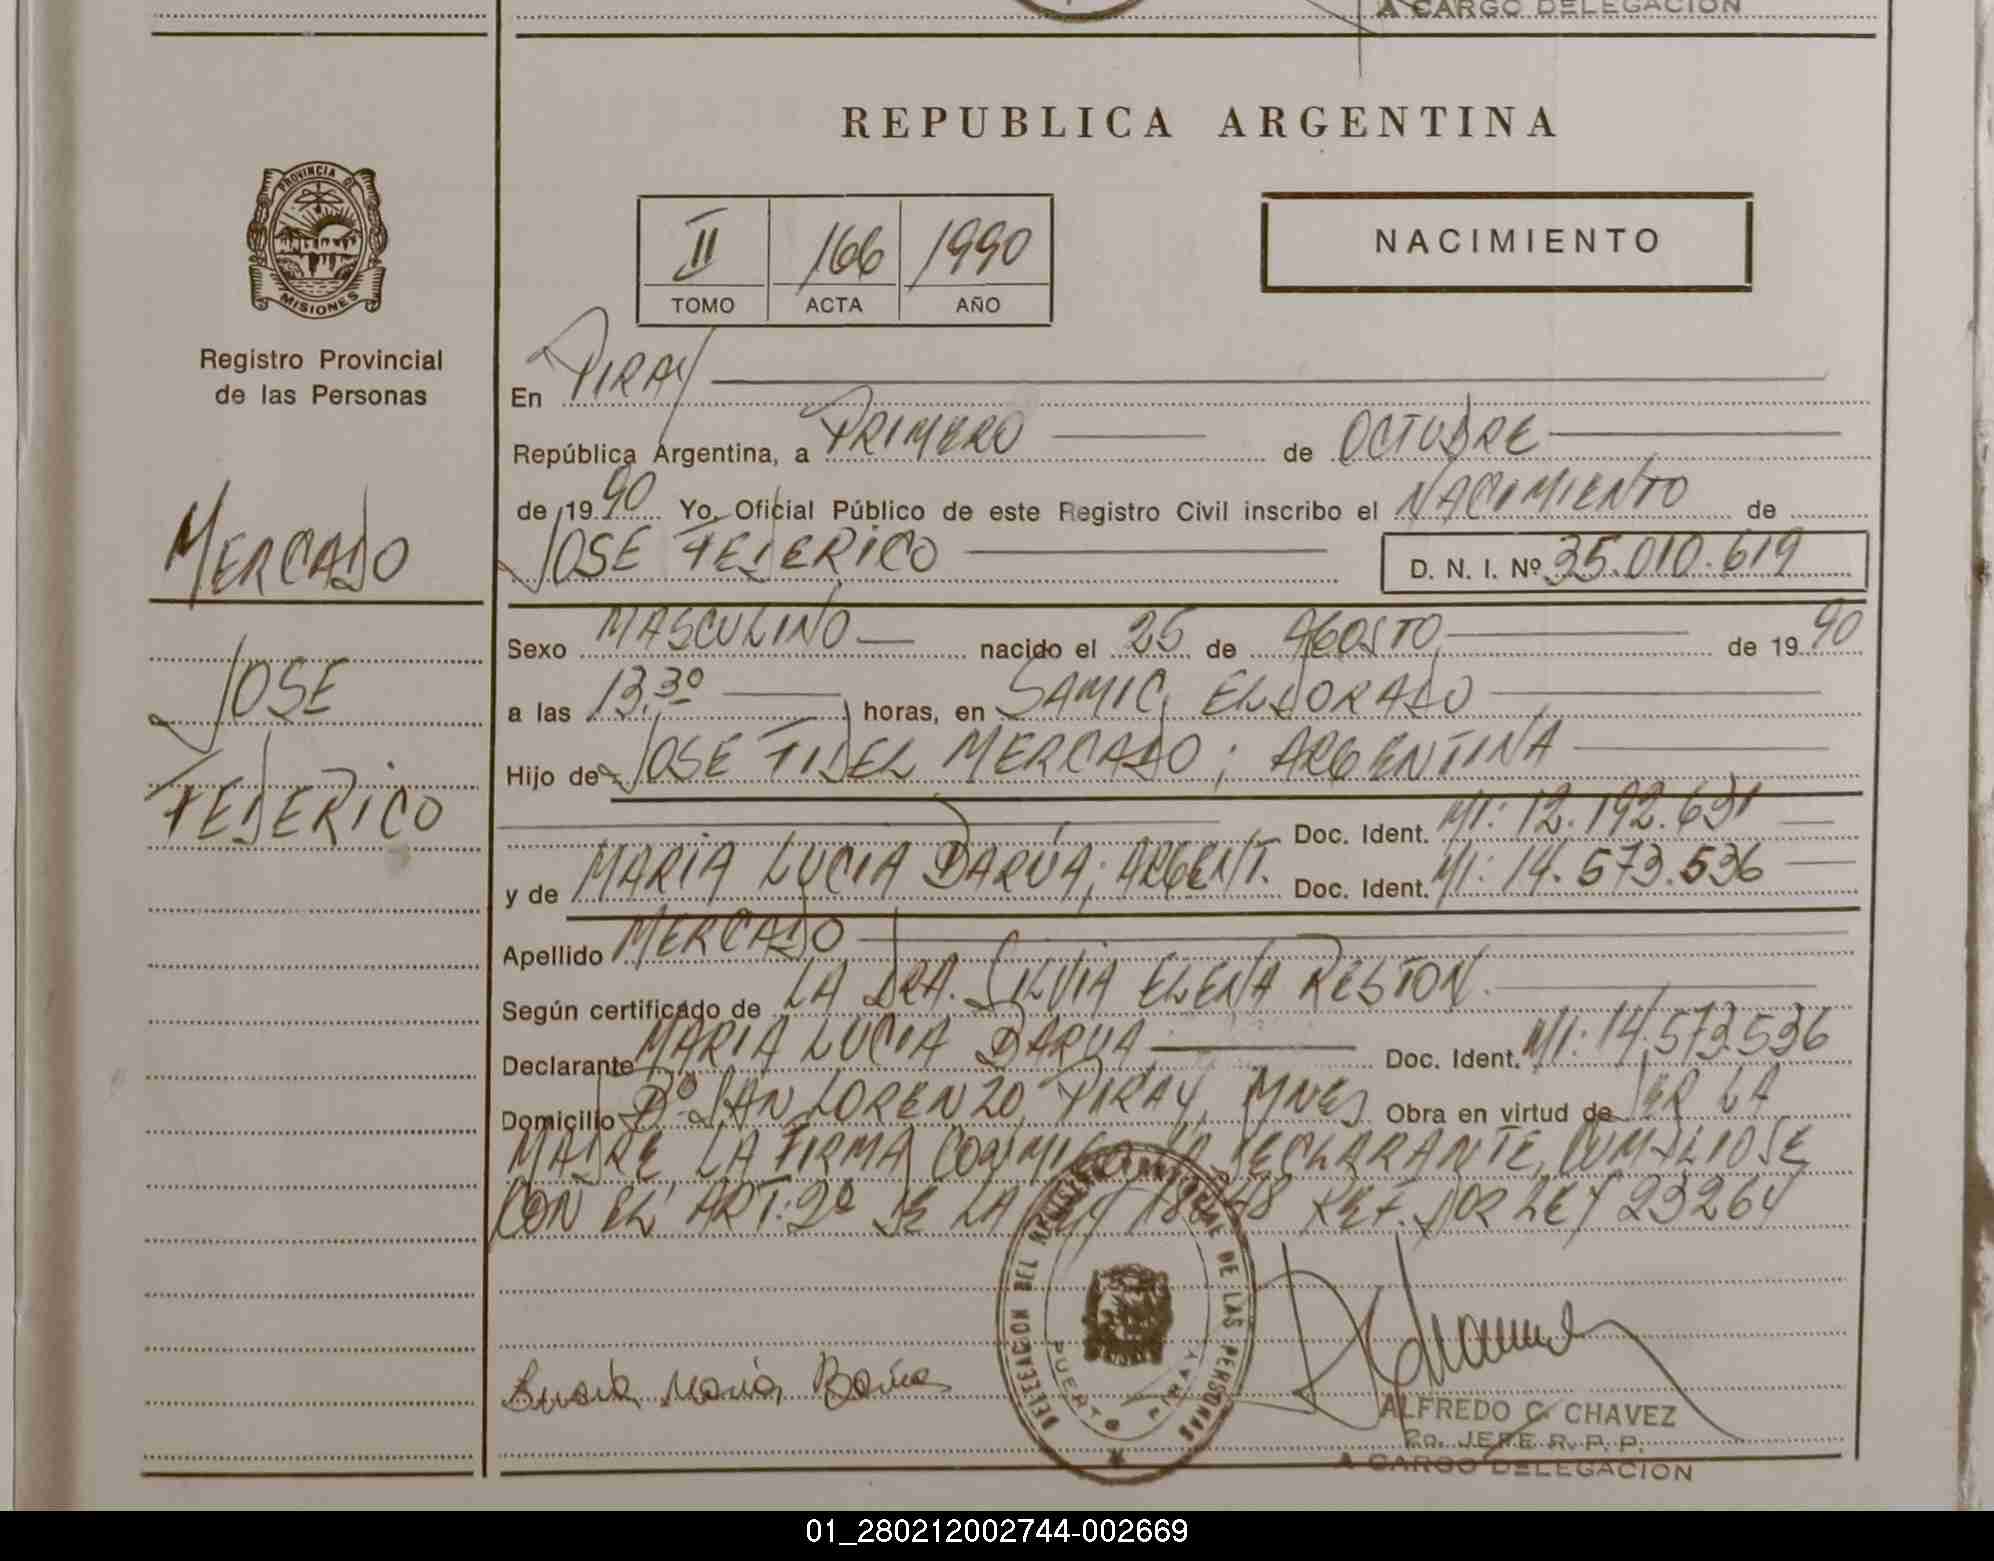 A CARGO DELEGACION
REPUBLICA ARGENTINA
PROVINCIA DE
MISIONES
Registro Provincial
de las Personas
II 166 1990
TOMO ACTA AÑO
NACIMIENTO
En PIRAY
República Argentina, a PRIMERO de OCTUBRE
de 1990 Yo, Oficial Público de este Registro Civil inscribo el NACIMIENTO de
JOSE FEDERICO D. N. I. Nº 35.010.619
MERCADO
JOSE
FEDERICO
Sexo MASCULINO nacido el 25 de AGOSTO de 1990
a las 13,30 horas, en SAMIC, ELDORADO
Hijo de JOSE FIDEL MERCADO; ARGENTINA
Doc. Ident. MI: 12.192.631
y de MARIA LUCIA BARÚA; ARGENT. Doc. Ident. MI: 14.573.536
Apellido MERCADO
Según certificado de LA DRA. SILVIA ELENA RESTON.
Declarante MARIA LUCIA BARUA Doc. Ident. MI: 14.573.536
Domicilio Bº SAN LORENZO, PIRAY, MNES Obra en virtud de SER LA
MADRE LA FIRMA CONMIGO LA DECLARANTE, CUMPLIOSE
CON EL ART: 2º DE LA LEY 18248 REF. POR LEY 23264
DELEGACION DEL REGISTRO PROVINCIAL DE LAS PERSONAS
PUERTO PIRAY
María
ALFREDO C. CHAVEZ
2o. JEFE R. P. P.
A CARGO DELEGACION
01_280212002744-002669